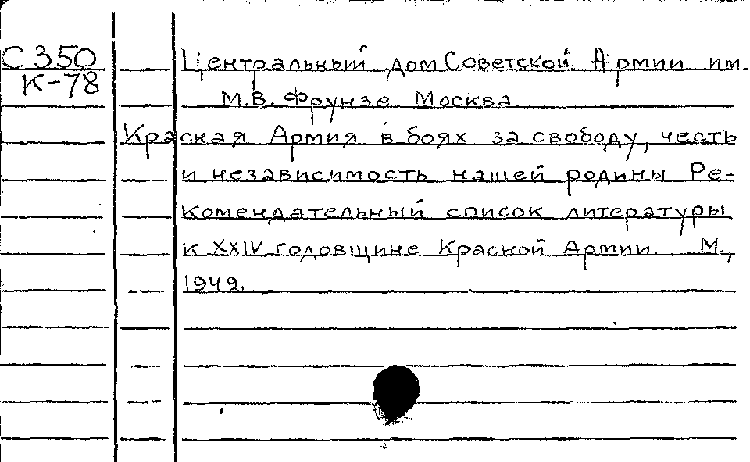 С350
К-78
Центральный дом Советской Армии им.
М.В. Фрунзе Москва
Красная Армия в боях за свободу, честь
и независимость нашей родины Ре-
комендательный список литературы
к XXIV годовщине Красной Армии. М.,
1949.